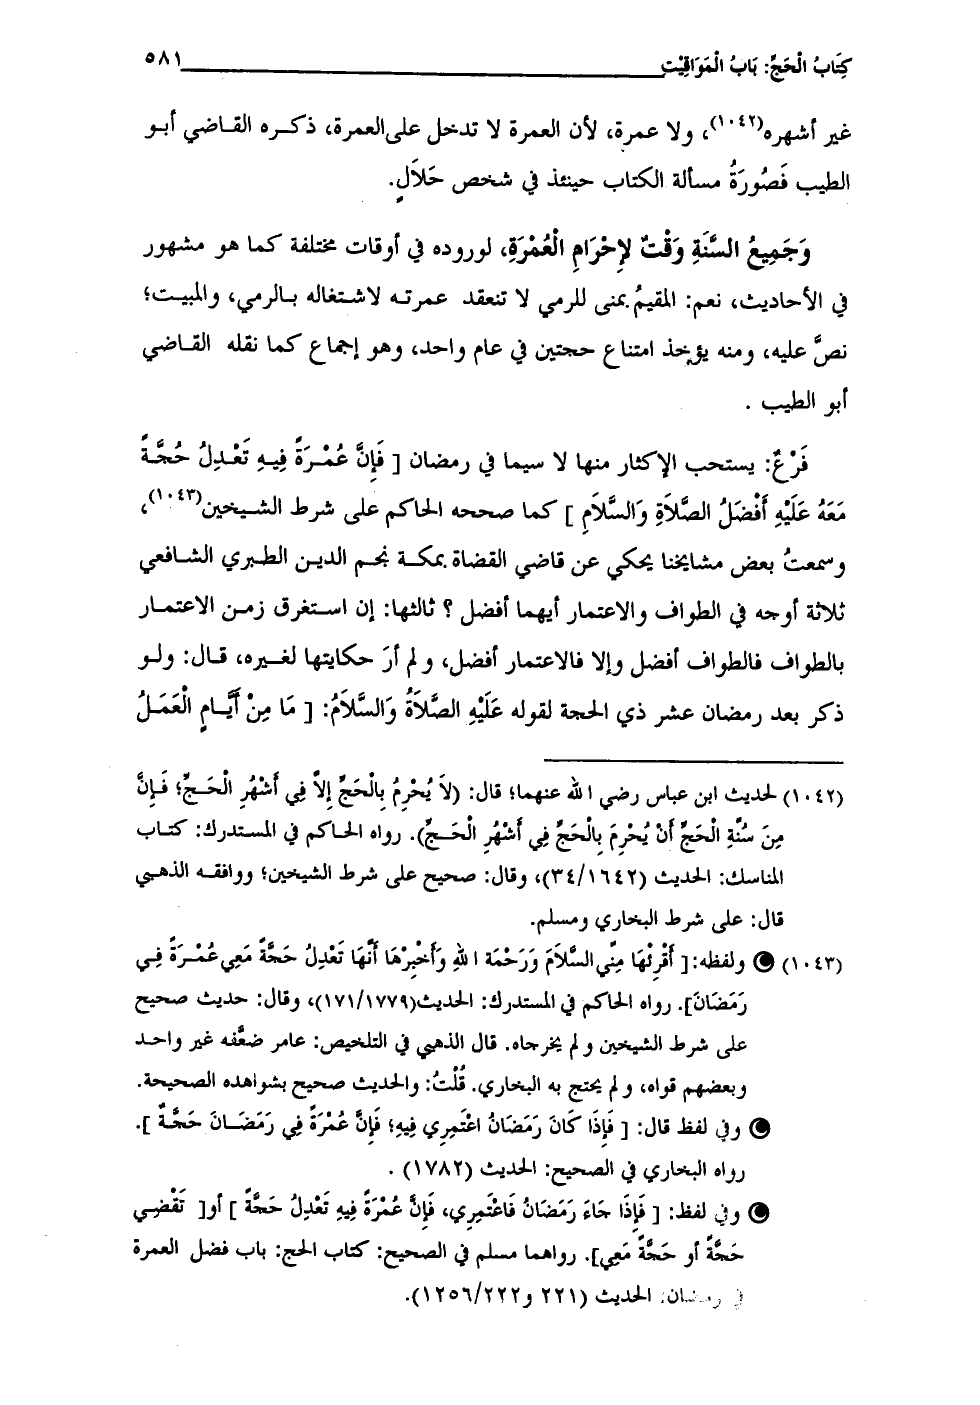 كِتَابُ الْحَجِّ: بَابُ الْمَوَاقِيْتِ ٥٨١
غير أشهره(١٠٤٢)، ولا عمرة، لأن العمرة لا تدخل على العمرة، ذكره القاضي أبو
الطيب فَصُورَةُ مسألة الكتاب حينئذ في شخص حَلاَلٍ.
وَجَمِيعُ السَّنَةِ وَقْتٌ لإِحْرَامِ الْعُمْرَةِ، لوروده في أوقات مختلفة كما هو مشهور
في الأحاديث، نعم: المقيمُ بمنى للرمي لا تنعقد عمرته لاشتغاله بالرمي، والمبيت؛
نصَّ عليه، ومنه يؤخذ امتناع حجتين في عام واحد، وهو إجماع كما نقله القاضي
أبو الطيب .
فَرْعٌ: يستحب الإكثار منها لا سيما في رمضان [ فَإِنَّ عُمْرَةً فِيهِ تَعْدِلُ حُجَّةً
مَعَهُ عَلَيْهِ أَفْضَلُ الصَّلاَةِ وَالسَّلاَمِ ] كما صححه الحاكم على شرط الشيخين(١٠٤٣)،
وسمعتُ بعض مشايخنا يحكي عن قاضي القضاة بمكة نجم الدين الطبري الشافعي
ثلاثة أوجه في الطواف والاعتمار أيهما أفضل ؟ ثالثها: إن استغرق زمن الاعتمار
بالطواف فالطواف أفضل وإلا فالاعتمار أفضل، ولم أرَ حكايتها لغيره، قال: ولو
ذكر بعد رمضان عشر ذي الحجة لقوله عَلَيْهِ الصَّلاَةُ وَالسَّلاَمُ: [ مَا مِنْ أَيَّامٍ الْعَمَلُ
(١٠٤٢) لحديث ابن عباس رضي الله عنهما؛ قال: (لاَ يُحْرِمُ بِالْحَجِّ إِلاَّ فِي أَشْهُرِ الْحَجِّ؛ فَإِنَّ
مِنَ سُنَّةِ الْحَجِّ أَنْ يُحْرِمَ بِالْحَجِّ فِي أَشْهُرِ الْحَجِّ). رواه الحاكم في المستدرك: كتاب
المناسك: الحديث (٣٤/١٦٤٢)، وقال: صحيح على شرط الشيخين؛ ووافقه الذهبي
قال: على شرط البخاري ومسلم.
(١٠٤٣) ولفظه:[ أَقْرِئْهَا مِنِّي السَّلاَمَ وَرَحْمَةَ اللهِ وَأَخْبِرْهَا أَنَّهَا تَعْدِلُ حَجَّةً مَعِي عُمْرَةً فِي
رَمَضَانَ]. رواه الحاكم في المستدرك: الحديث(١٧١/١٧٧٩)، وقال: حديث صحيح
على شرط الشيخين ولم يخرجاه. قال الذهبي في التلخيص: عامر ضعَّفه غير واحد
وبعضهم قواه، ولم يحتج به البخاري. قُلْتُ: والحديث صحيح بشواهده الصحيحة.
وفي لفظ قال: [ فَإِذَا كَانَ رَمَضَانُ اعْتَمِرِي فِيهِ؛ فَإِنَّ عُمْرَةً فِي رَمَضَانَ حَجَّةٌ ].
رواه البخاري في الصحيح: الحديث (١٧٨٢) .
وفي لفظ: [ فَإِذَا جَاءَ رَمَضَانُ فَاعْتَمِرِي، فَإِنَّ عُمْرَةً فِيهِ تَعْدِلُ حَجَّةً ] أو[ تَقْضِي
حَجَّةً أو حَجَّةً مَعِي]. رواهما مسلم في الصحيح: كتاب الحج: باب فضل العمرة
في رمضان: الحديث (٢٢١ و٢٢٢/١٢٥٦).